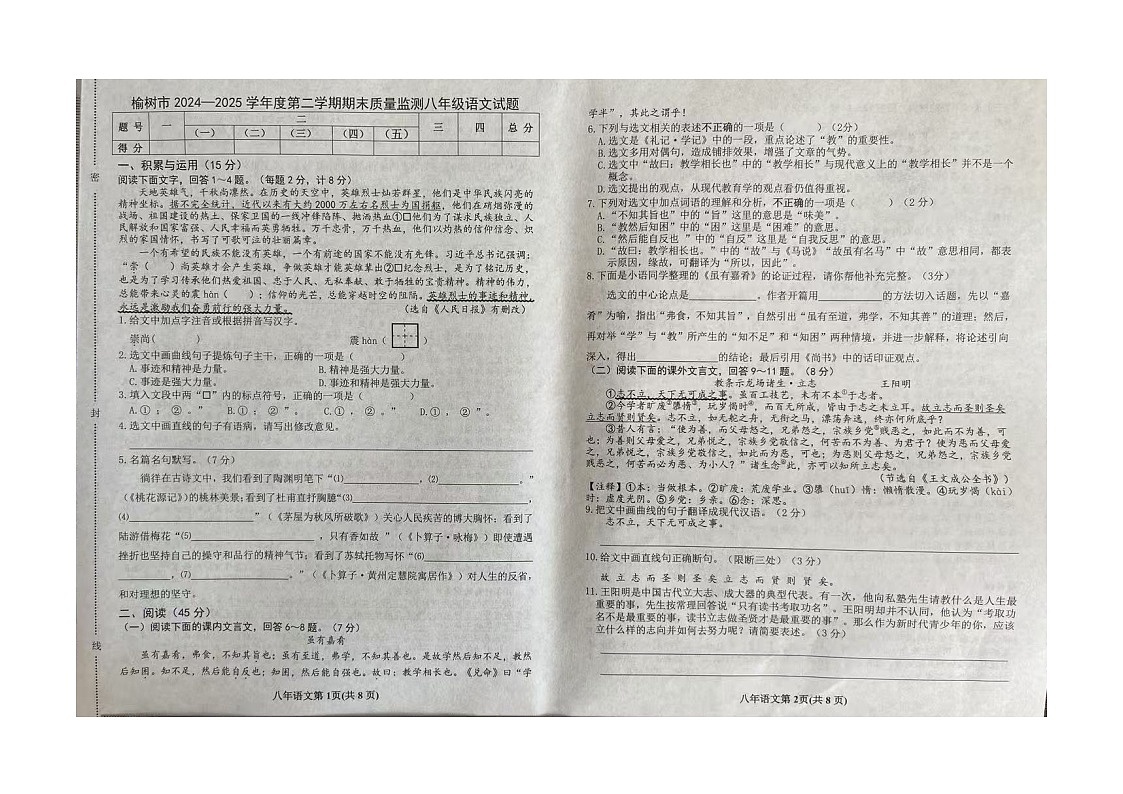 榆树市 2024—2025 学年度第二学期期末质量监测八年级语文试题
题 号 一 二 三 四 总 分
（一） （二） （三） （四） （五）
得 分
密
封
线
一、积累与运用（15 分）
阅读下面文字，回答 1～4 题。（每题 2 分，计 8 分）
天地英雄气，千秋尚凛然。在历史的天空中，英雄烈士灿若群星，他们是中华民族闪亮的
精神坐标。据不完全统计，近代以来有大约 2000 万左右名烈士为国捐躯，他们在硝烟弥漫的
战场、祖国建设的热土、保家卫国的一线冲锋陷阵、抛洒热血①□他们为了谋求民族独立、人
民解放和国家富强、人民幸福而英勇牺牲。万千忠骨，万千热血，他们以灼热的信仰信念、炽
烈的家国情怀，书写了可歌可泣的壮丽篇章。
一个有希望的民族不能没有英雄，一个有前途的国家不能没有先锋。习近平总书记强调：
“崇（ ）尚英雄才会产生英雄，争做英雄才能英雄辈出②□纪念烈士，是为了铭记历史，
也是为了学习传承他们热爱祖国、忠于人民、无私奉献、敢于牺牲的宝贵精神。精神的伟力，
总能带来心灵的震 hàn（ ）；信仰的光芒，总能穿越时空的阻隔。英雄烈士的事迹和精神，
永远是激励我们奋勇前行的强大力量。 （选自《人民日报》有删改）
1. 给文中加点字注音或根据拼音写汉字。
崇尚（ ） 震 hàn（ ）
2. 选文中画曲线句子提炼句子主干，正确的一项是（ ）
A. 事迹和精神是力量。 B. 精神是强大力量。
C. 事迹是强大力量。 D. 事迹和精神是强大力量。
3. 填入文段中两“□”内的标点符号，正确的一项是（ ）
A.① ； ② 。” B.① ； ② ”。 C.① ， ② 。” D.① ， ② ”。
4. 选文中画直线的句子有语病，请写出修改意见。
5. 名篇名句默写。（7 分）
徜徉在古诗文中，我们看到了陶渊明笔下“⑴ ，⑵ 。”
（《桃花源记》）的桃林美景；看到了杜甫直抒胸臆“⑶ ，
⑷ ”（《茅屋为秋风所破歌》）关心人民疾苦的博大胸怀；看到了
陆游借梅花“⑸ ，只有香如故 ”（《卜算子·咏梅》）即使遭遇
挫折也坚持自己的操守和品行的精神气节；看到了苏轼托物写怀“⑹
，⑺ 。”（《卜算子·黄州定慧院寓居作》）对人生的反省，
和对理想的坚守。
二、阅读（45 分）
（一）阅读下面的课内文言文，回答 6～8 题。（7 分）
虽有嘉肴
虽有嘉肴，弗食，不知其旨也；虽有至道，弗学，不知其善也。是故学然后知不足，教然
后知困。知不足，然后能自反也；知困，然后能自强也。故曰：教学相长也。《兑命》曰“学
八年语文第 1页(共 8 页)
学半”，其此之谓乎！
6. 下列与选文相关的表述不正确的一项是（ ）（2分）
A. 选文是《礼记·学记》中的一段，重点论述了“教”的重要性。
B. 选文多用对偶句，造成铺排效果，增强了文章的气势。
C. 选文中“故曰：教学相长也”中的“教学相长”与现代意义上的“教学相长”并不是一个
概念。
D. 选文提出的观点，从现代教育学的观点看仍值得重视。
7. 下列对选文中加点词语的理解和分析，不正确的一项是（ ）（2 分）
A. “不知其旨也”中的“旨”这里的意思是“味美”。
B. “教然后知困”中的“困”这里是“困难”的意思。
C. “然后能自反也 ”中的“自反”这里是“自我反思”的意思。
D. “故曰：教学相长也。”中的“故”与《马说》“故虽有名马”中“故”意思相同，都表
示原因，缘故，可翻译为“所以，因此”。
8. 下面是小语同学整理的《虽有嘉肴》的论证过程，请你帮他补充完整。（3分）
选文的中心论点是 ，作者开篇用 的方法切入话题，先以“嘉
肴”为喻，指出“弗食，不知其旨”，自然引出“虽有至道，弗学，不知其善”的道理；然后，
再对举“学”与“教”所产生的“知不足”和“知困”两种情境，并进一步解释，将论述引向
深入，得出 的结论；最后引用《尚书》中的话印证观点。
（二）阅读下面的课外文言文，回答 9～11 题。（8 分）
教条示龙场诸生·立志 王阳明
①志不立，天下无可成之事。虽百工技艺，未有不本①于志者。
②今学者旷废②隳惰③，玩岁愒时④，而百无所成，皆由于志之未立耳。故立志而圣则圣矣
立志而贤则贤矣。志不立，如无舵之舟，无衔之马，漂荡奔逸，终亦何所底乎？
③昔人有言：“使为善，而父母怒之，兄弟怨之，宗族乡党⑤贱恶之，如此而不为善，可
也；为善则父母爱之，兄弟悦之，宗族乡党敬信之，何苦而不为善、为君子？使为恶而父母爱
之，兄弟悦之，宗族乡党敬信之，如此而为恶，可也；为恶则父母怒之，兄弟怨之，宗族乡党
贱恶之，何苦而必为恶、为小人？”诸生念⑥此，亦可以知所立志矣。
（节选自《王文成公全书》）
【注释】①本：当做根本。②旷废：荒废学业。③隳（huī）惰：懒惰散漫。④玩岁愒（kài）
时：虚度光阴。⑤乡党：乡亲。⑥念：深思。
9. 把文中画曲线的句子翻译成现代汉语。（2 分）
志不立，天下无可成之事。
10. 给文中画直线句正确断句。（限断三处）（3 分）
故 立 志 而 圣 则 圣 矣 立 志 而 贤 则 贤 矣。
11. 王阳明是中国古代立大志、成大器的典型代表。有一次，他向私塾先生请教什么是人生最
重要的事，先生按常理回答说“只有读书考取功名”。王阳明却并不认同，他认为“考取功
名不是最重要的事，读书立志做圣贤才是最重要的事”。那么作为新时代青少年的你，应该
立什么样的志向并如何去努力呢？请简要表述。（3 分）
八年语文第 2页(共 8 页)